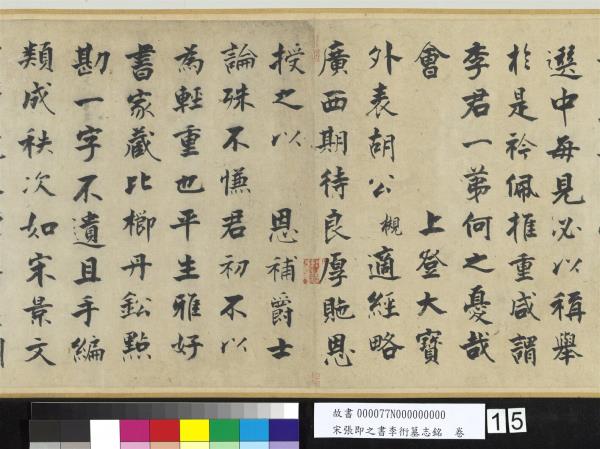 選中每見必以稱舉
於是衿佩推重咸謂
李君一第何之憂哉
會　　　上登大寶
外表胡公槻適經略
廣西期待良厚貤恩
授之以　恩補爵士
論殊不慊君初不以
為輕重也平生雅好
書家藏比櫛丹鈆點
勘一字不遺且手編
類成秩次如宋景文
故書 000077N000000000
宋張即之書李衎墓志銘 卷
15